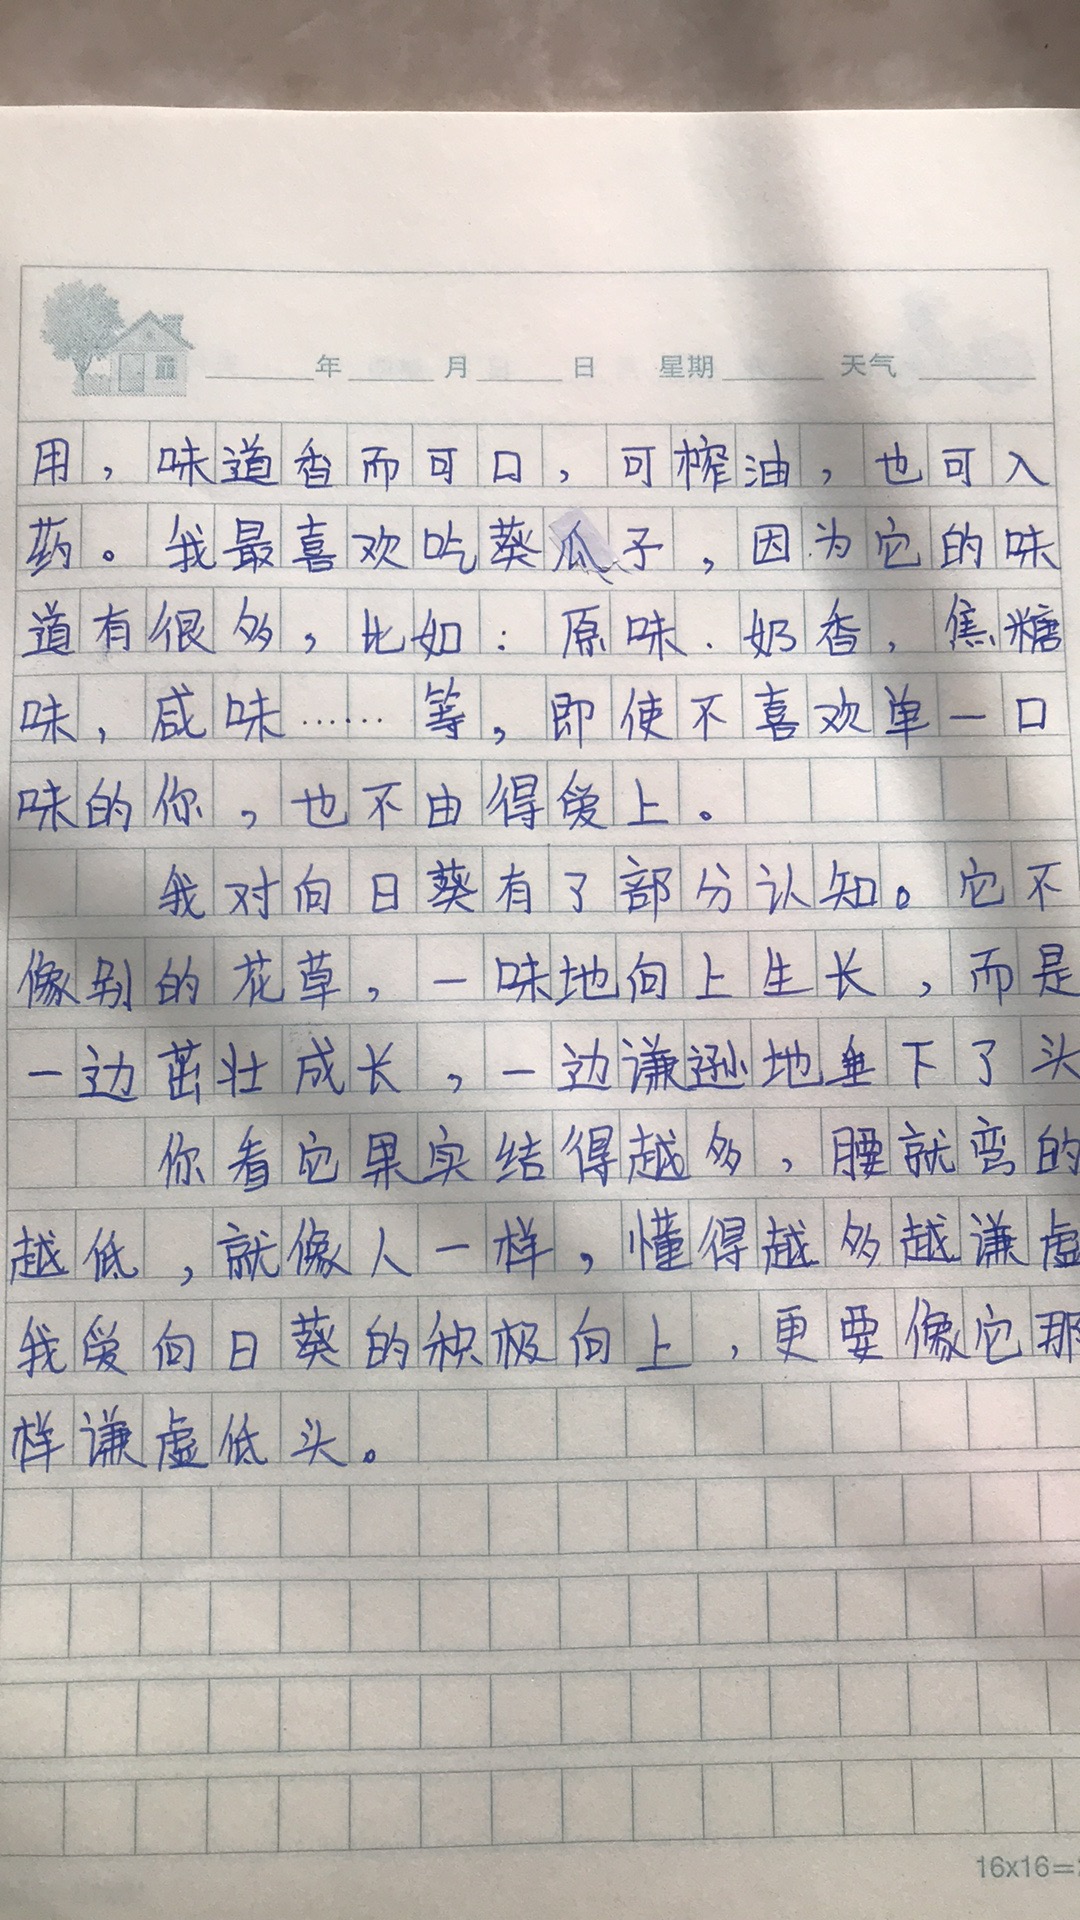 年 月 日 星期 天气
用，味道香而可口，可榨油，也可入
药。我最喜欢吃葵瓜子，因为它的味
道有很多，比如：原味．奶香，焦糖
味，咸味……等，即使不喜欢单一口
味的你，也不由得爱上。
我对向日葵有了部分认知。它不
像别的花草，一味地向上生长，而是
一边茁壮成长，一边谦逊地垂下了头
你看它果实结得越多，腰就弯的
越低，就像人一样，懂得越多越谦虚
我爱向日葵的积极向上，更要像它那
样谦虚低头。
16x16=